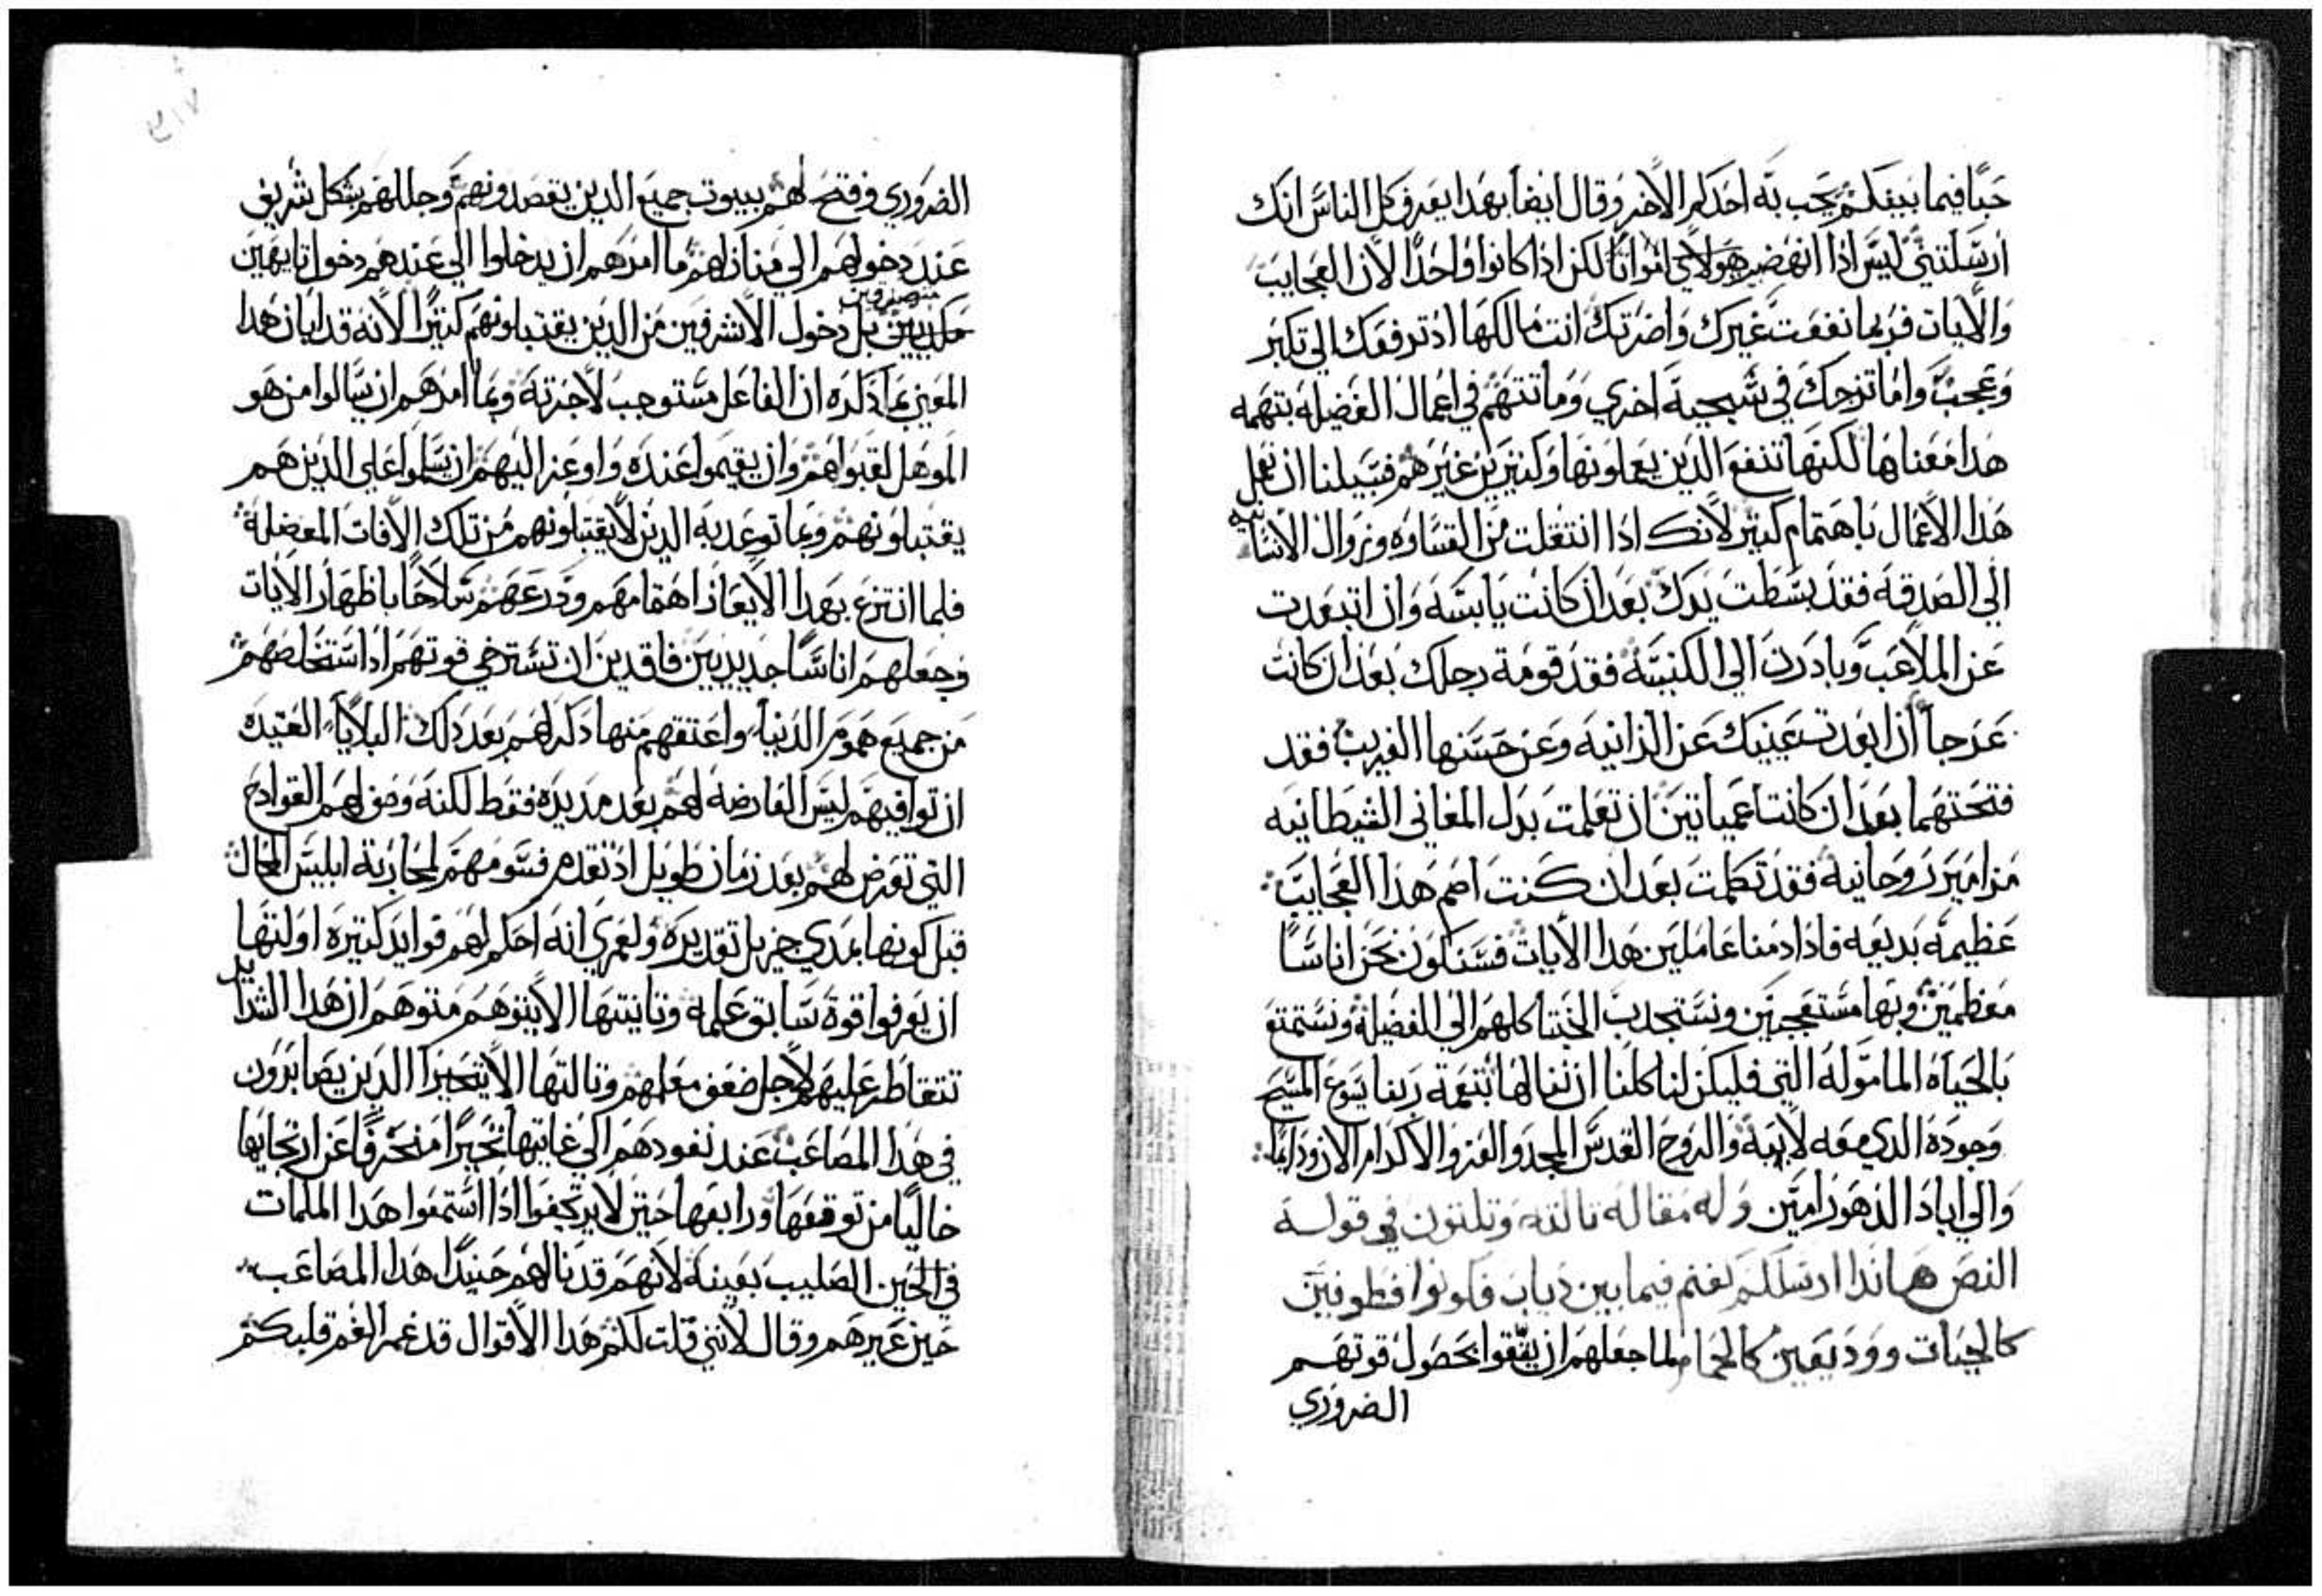 حبًا فيما بينكم يحب به احدكم الاخر وقال ايضا بهدا يعرف كل الناس انك
ارسلتني ليس ادا انهضو هولاي امواتًا لكن ادا كانوا واحدًا لان العجايب
والايات فربما نفعت غيرك واضرتك انت مالكها اد ترفعك الي تكبر
وعجب واما تزجك في سجية اخري وما تتهم في اعمال الفضيله بتهمه
هدا معناها لكنها تنفع الدين يعملونها وكتيرين غيرهم فسبيلنا ان نعمل
هدا الاعمال باهتمام كتير لانك ادا انتقلت من القساوه وزوال الانسانيه
الي الصدقه فقد بسطت يدك بعد ان كانت يابسه وان ابتعدت
عن الملاعب وبادرت الي الكنيسه فقد قومة رجلك بعد ان كانت
عرجا ان ابعدت عينيك عن الزانيه وعن حسنها الغريب فقد
فتحتهما بعد ان كانتا عمياتين ان تعلمت بدل المغاني الشيطانيه
مزامير روحانيه فقد تكلمت بعد ان كنت اصم هدا العجايب
عظيمه بديعه فادا دمنا عاملين هدا الايات فسنكون نحن اناسًا
معظمين وبها مستعجبين ونستجدب الخبتا كلهم الي الفضيله ونستمتع
بالحياه الماموله التي فليكن لنا كلنا ان ننالها بنعمة ربنا يسوع المسيح
وجوده الدي معه لابيه والروح القدس المجد والعز والاكرام الان ودايما
والي اباد الدهور امين وله مقاله تالته وتلتون في قوله
النص هاندا ارسلكم كغنم فيما بين دياب فكونوا فطونين
كالحيات وودیعین كالحمام لما جعلهم ان يثقوا بحصول قوتهم
الضروري
الضروري وفتح لهم بيوت جميع الدين يقصدونهم وجللهم بشكل شريف
عند دخولهم الي منازلهم ما امرهم ان يدخلوا الي عندهم دخول تايهين
متصدقين
بل دخول الاشرفين من الدين يقتبلونهم كتيرًا لانه قد ابان هدا
المعني بما دكره ان الفاعل مستوجب لاجرته وبما امرهم ان يسالوا من هو
الموهل لقبولهم وان يقيموا عنده واوعز اليهم ان يسلموا علي الدين هم
يقتبلونهم وبما توعد به الدين لا يقتبلونهم من تلك الافات المعضله
فلما انتزع بهدا الايعاز اهتمامهم ودرعهم سلاحًا باظهار الايات
وجعلهم اناسًا حديديين فاقدين ان تسترخي قوتهم ادا استخلصهم
من جميع هموم الدنيا واعتقهم منها دكر لهم بعد دلك البلايا العتيده
ان توافيهم ليس العارضه لهم بعد مديده فقط لكنه وصف لهم القوادح
التي تعرض لهم بعد زمان طويل اد تقدم فسومهم لمحاربة ابليس المحال
قبل كونها بمدي جزيل تقديره ولعمري انه احكم لهم فوايد كتيره اولتها
ان يعرفوا قوة سابق علمه وتانيتها الا يتوهم متوهم ان هدا الشدايد
تتقاطر عليهم لاجل ضعف معلمهم وتالتها الا يتحيرا الدين يصابرون
في هدا المصاعب عند نفودهم الي غايتها تحيرًا منحرفًا عن ارتجايها
خاليًا من توقعها ورابعها حتي لا يرتجفوا ادا استمعوا هدا الملمات
في الحين الصليب بعينه لانهم قد نالهم حنيدًا هدا المصاعب
حين عيرهم وقال لانني قلت لكم هدا الاقوال قد غمر الغم قلبكم